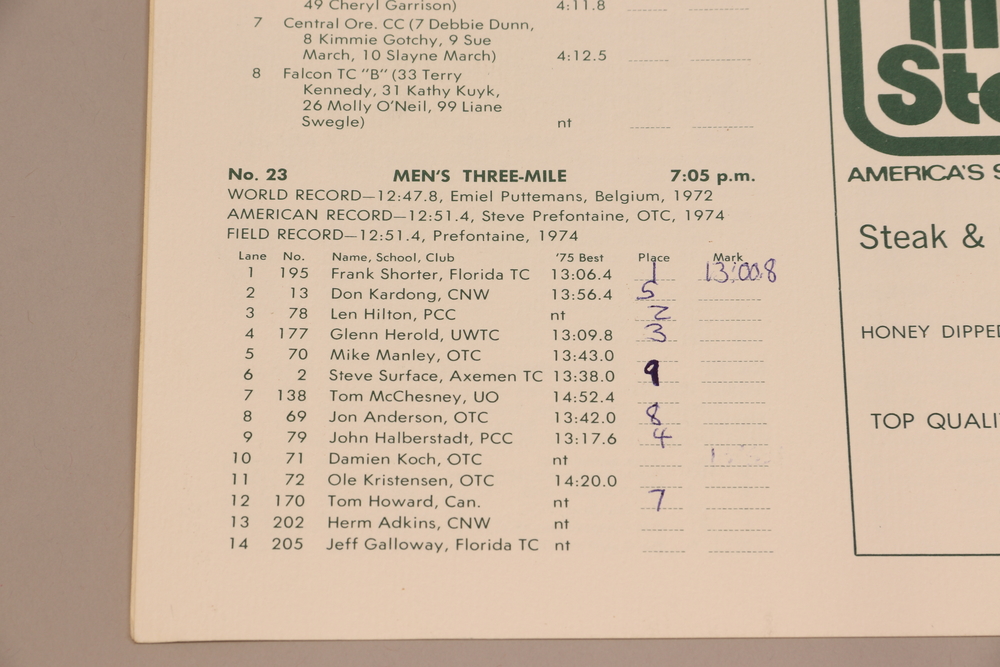 49 Cheryl Garrison) 4:11.8
7 Central Ore. CC (7 Debbie Dunn,
8 Kimmie Gotchy, 9 Sue
March, 10 Slayne March) 4:12.5
8 Falcon TC "B" (33 Terry
Kennedy, 31 Kathy Kuyk,
26 Molly O'Neil, 99 Liane
Swegle) nt
No. 23 MEN'S THREE-MILE 7:05 p.m.
WORLD RECORD—12:47.8, Emiel Puttemans, Belgium, 1972
AMERICAN RECORD—12:51.4, Steve Prefontaine, OTC, 1974
FIELD RECORD—12:51.4, Prefontaine, 1974
Lane No. Name, School, Club '75 Best Place Mark
1 195 Frank Shorter, Florida TC 13:06.4 1 13:00.8
2 13 Don Kardong, CNW 13:56.4 5
3 78 Len Hilton, PCC nt 2
4 177 Glenn Herold, UWTC 13:09.8 3
5 70 Mike Manley, OTC 13:43.0
6 2 Steve Surface, Axemen TC 13:38.0 9
7 138 Tom McChesney, UO 14:52.4
8 69 Jon Anderson, OTC 13:42.0 8
9 79 John Halberstadt, PCC 13:17.6 4
10 71 Damien Koch, OTC nt
11 72 Ole Kristensen, OTC 14:20.0
12 170 Tom Howard, Can. nt 7
13 202 Herm Adkins, CNW nt
14 205 Jeff Galloway, Florida TC nt
AMERICA'S
Steak &
HONEY DIPPED
TOP QUALI